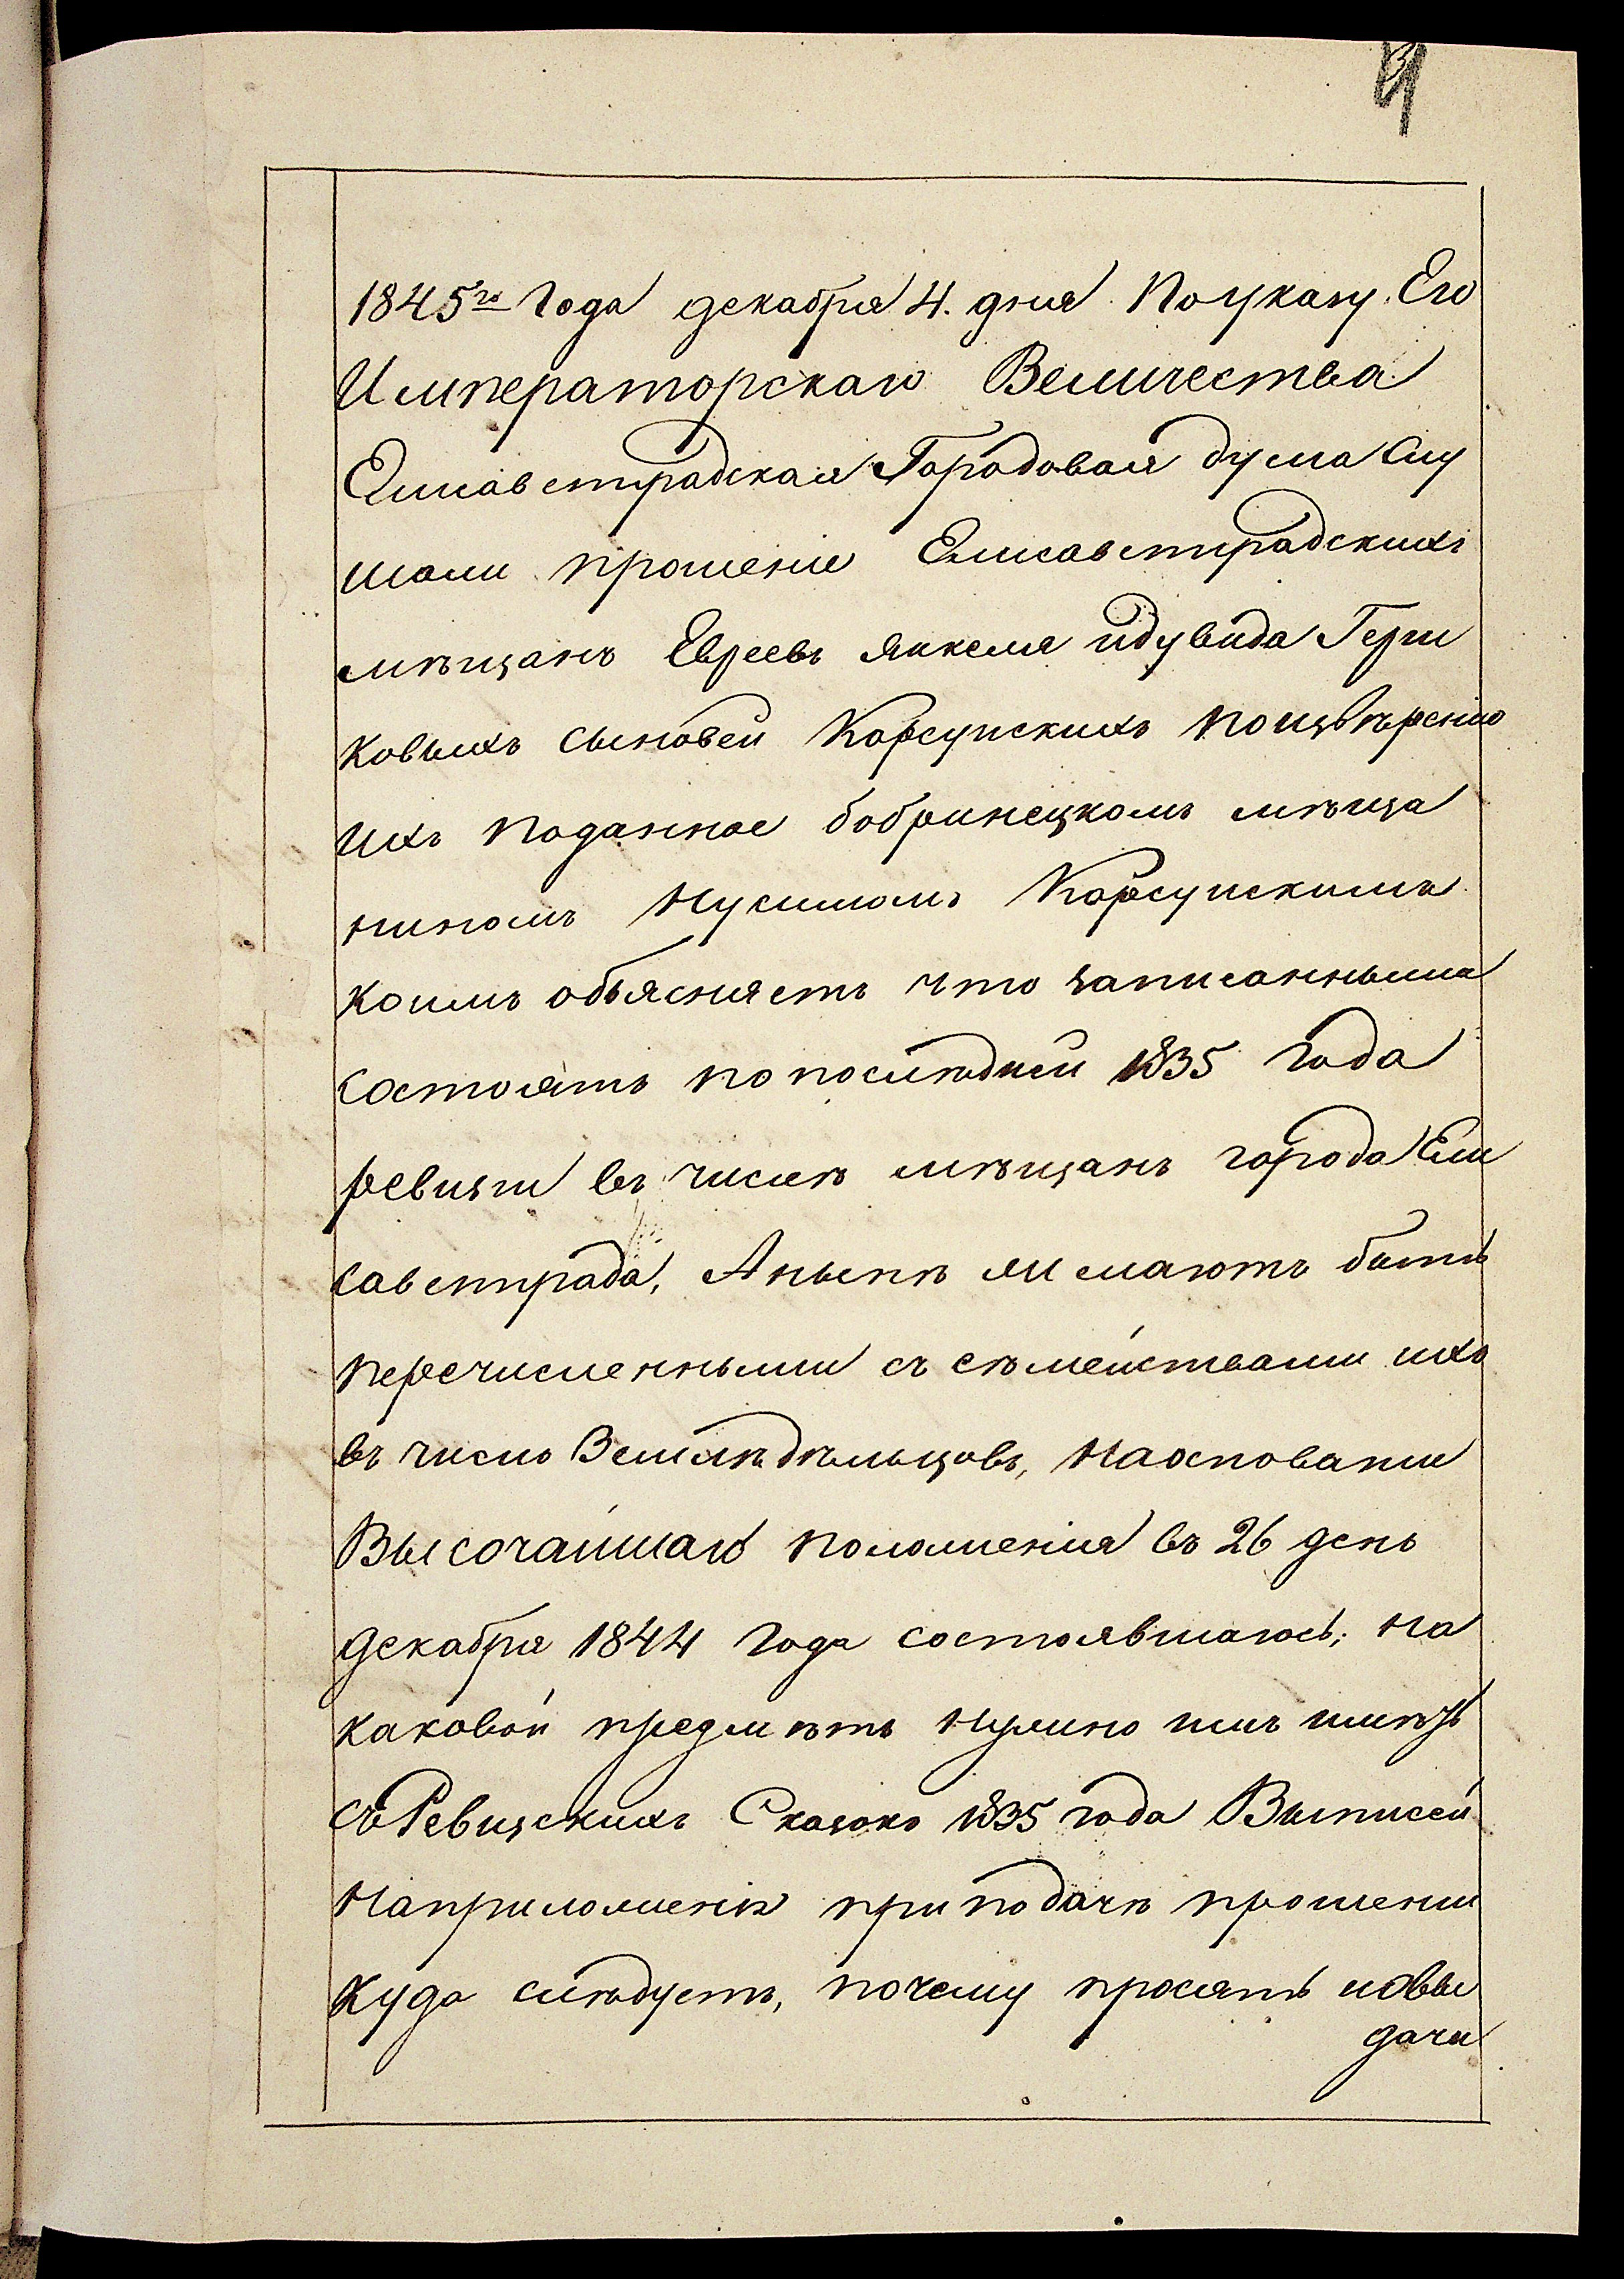 1845го Года декабря 4. дня Поуказу Его
Императорскаго Величества
Елисаветградская Городовая дума Слу
шали прошеніе Елисаветградскихъ
мѣщанъ Евреевъ Янкеля идувида Герш
ковыхъ сыновей Корсунскихъ поувѣренію
ихъ поданное бобринецкомъ мѣща
ниномъ Нусимомъ Корсунскимъ
коимъ объясняетъ что записанными
состоятъ по послѣдней 1835 года
ревизіи въ числѣ мѣщанъ города Ели
саветграда, Анынѣ желаютъ быть
перечисленными съ сѣмействами ихъ
въ число Земледѣльцовъ, наосновании
Высочайшаго положенія въ 26 день
декабря 1844 года состоявшагось; на
каковой предмѣтъ нужно имъ имѣть
съ Ревизскихъ Сказокъ 1835 года Выписей
наприложеніѣ при подачѣ прошении
куда слѣдуетъ, почему просятъ овы
дачи